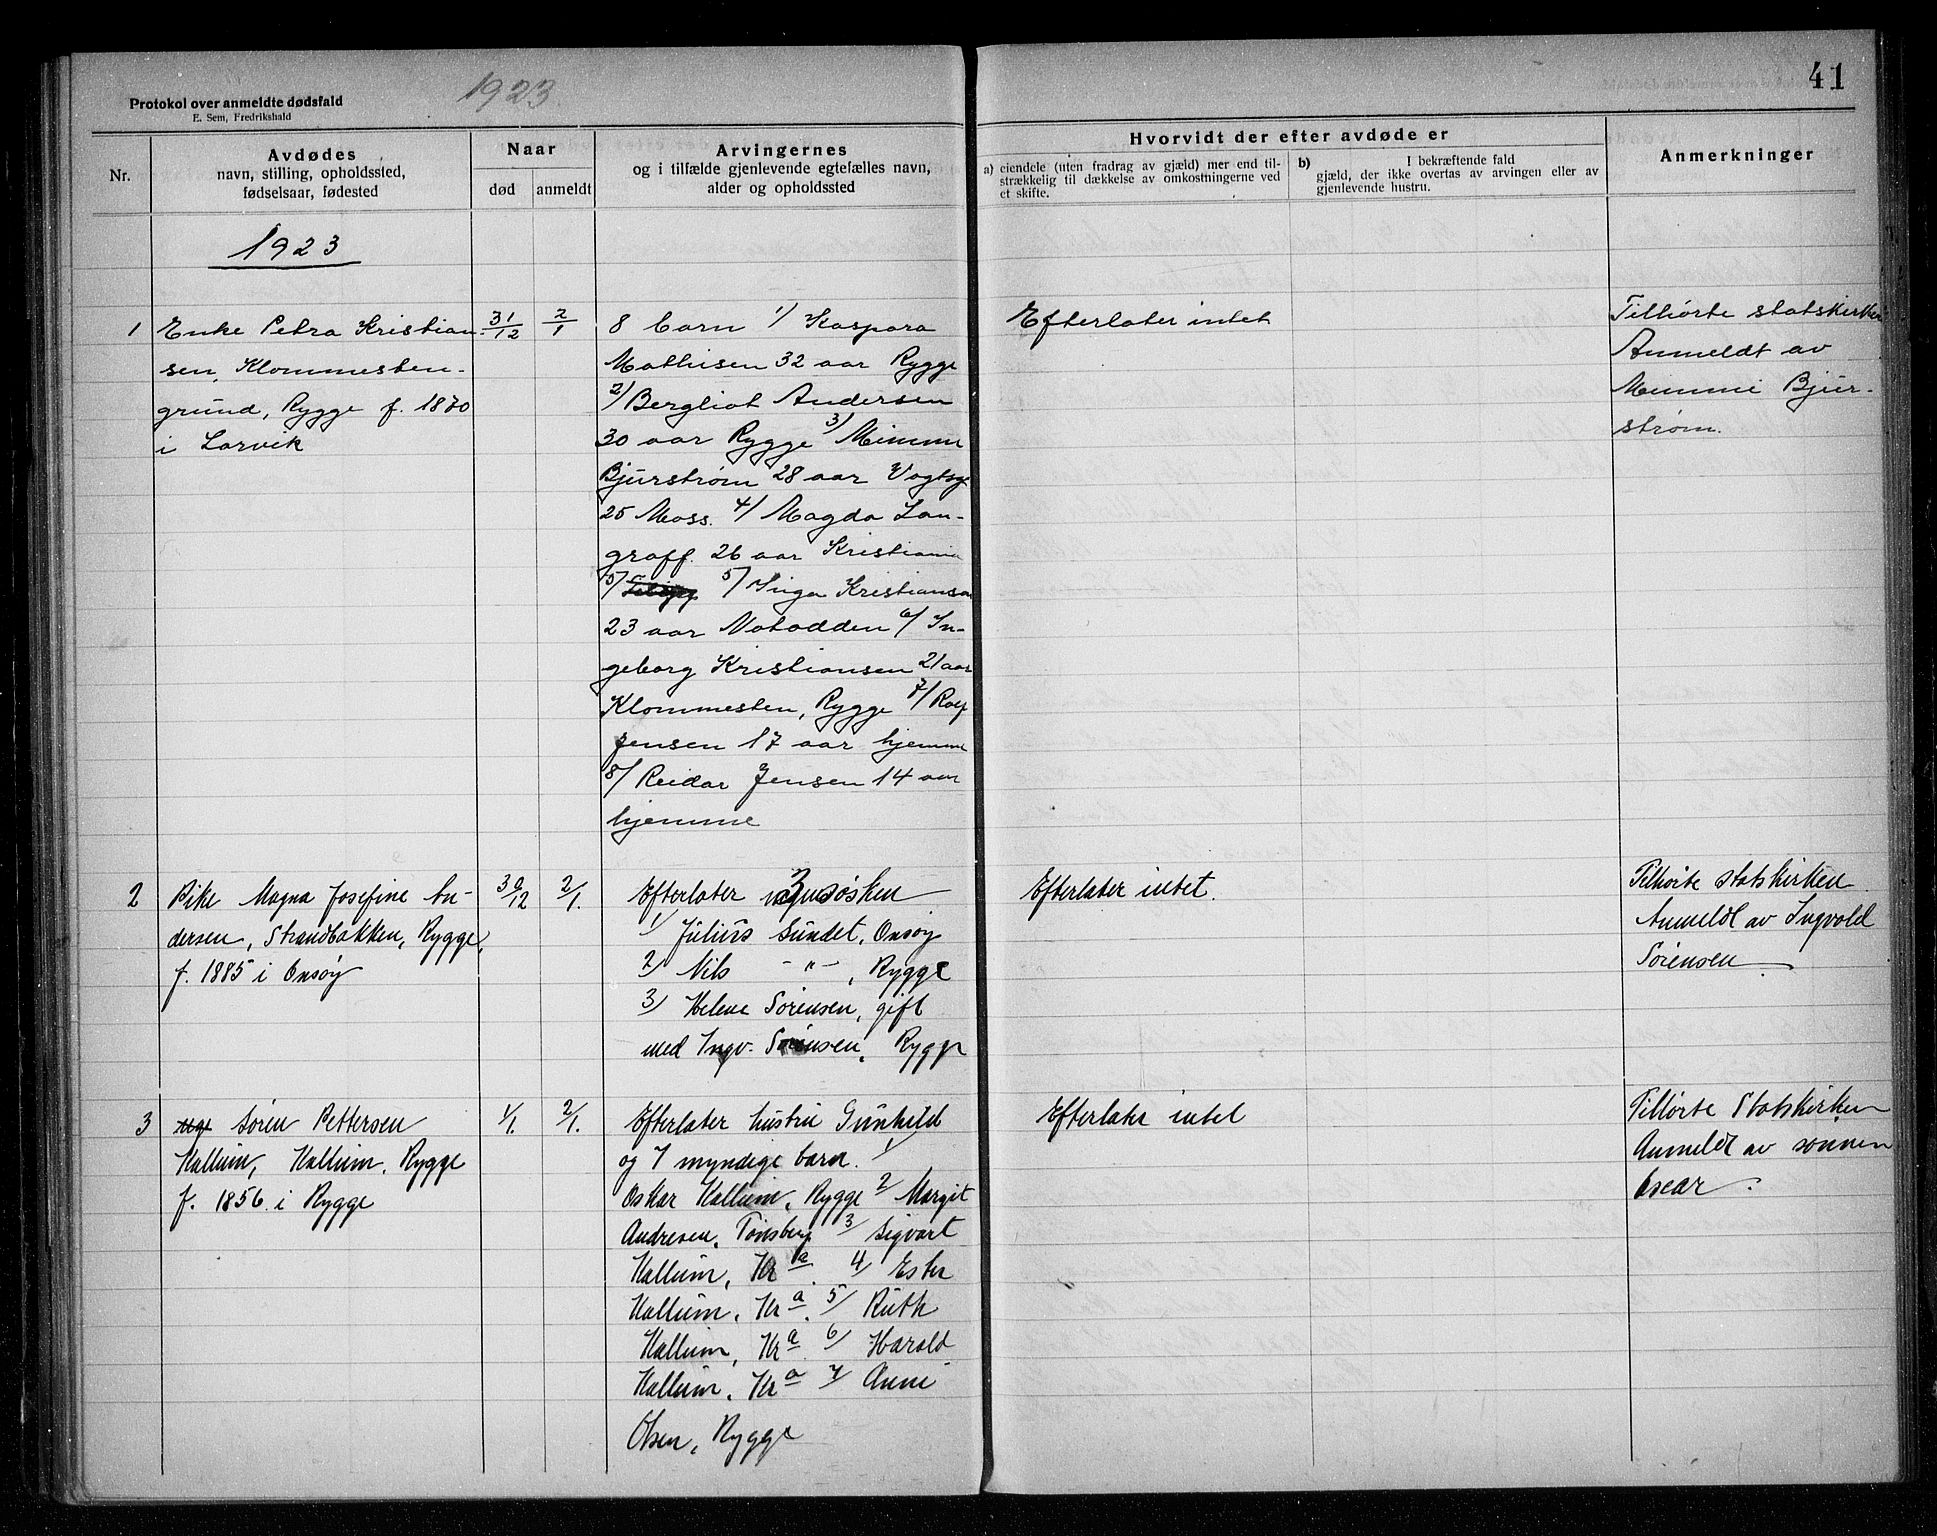 41
Protokol over anmeldte dødsfald
E. Sem, Fredrikshald
1923
Nr.
Avdødes
navn, stilling, opholdssted,
fødselsaar, fødested
Naar
død
anmeldt
Arvingernes
og i tilfælde gjenlevende egtefælles navn,
alder og opholdssted
Hvorvidt der efter avdøde er
a) eiendele (uten fradrag av gjæld) mer end til-
strækkelig til dækkelse av omkostningerne ved
et skifte.
b) I bekræftende fald
gjæld, der ikke overtas av arvingen eller av
gjenlevende hustru.
Anmerkninger
1923
1
Enke Petra Kristian-
sen, Klommesten-
grund, Rygge f. 1870
i Larvik
31/12
2/1
8 barn 1/ Kaspara
Mathisen 32 aar Rygge
2/ Bergliot Andersen
30 aar Rygge 3/ Mimmi
Bjurstrøm 28 aar Vogtsg
25 Moss. 4/ Magda Lan-
graff. 26 aar Kristiania
5/ 5/ Inga Kristiansen
23 aar Notodden 6/ In-
geborg Kristiansen 21 aar
Klommesten, Rygge 7/ Rolf
Jensen 17 aar hjemme
8/ Reidar Jensen 14 aar
hjemme
Efterlater intet
Tilhørte statskirken
Anmeldt av
Mimmi Bjur-
strøm.
2
Pike Magna Josefine An-
dersen, Strandbakken, Rygge,
f. 1885 i Onsøy
30/12
2/1.
Efterlater 3 søsken
1/ Julius Sundet, Onsøy
2/ Nils -"-, Rygge
3/ Helene Sørensen, gift
med Ingv. Sørensen, Rygge
Efterlater intet.
Tilhørte statskirken
Anmeldt av Ingvald
Sørensen
3
Søren Pettersen
Hallum, Hallum, Rygge
f. 1856 i Rygge
1/1.
2/1.
Efterlater hustru Gunhild
og 7 myndige barn. 1/
Oskar Hallum, Rygge 2/ Margit
Andresen, Tønsberg 3/ Sigvart
Hallum, Kra. 4/ Ester
Hallum, Kra. 5/ Ruth
Hallum, Kra. 6/ Harald
Hallum, Kra. 7/ Anni
Olsen, Rygge
Efterlater intet
Tilhørte Statskirken
Anmeldt av sønnen
Oscar.